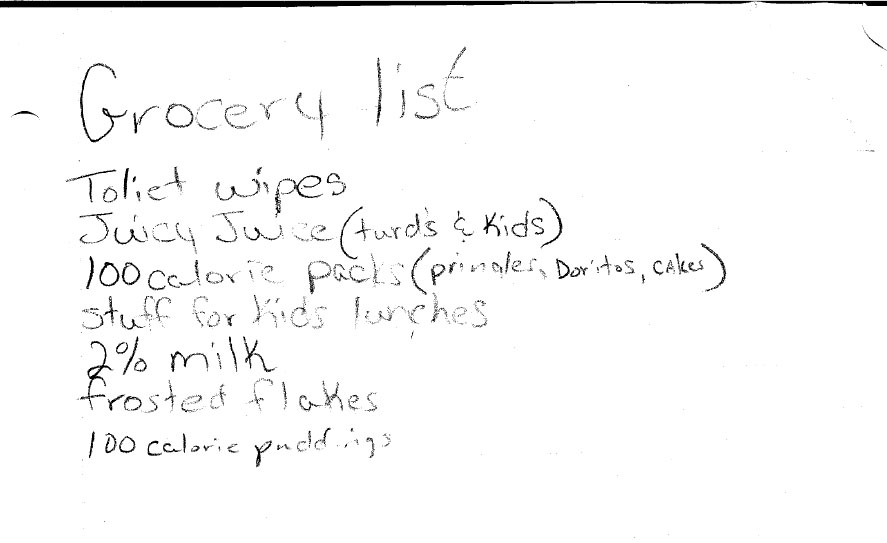 - Grocery list
Toliet wipes
Juicy Juice (turd's & Kids)
100 calorie packs (pringles, Doritos, cakes)
stuff for kids lunches
2% milk
frosted flakes
100 calorie puddings